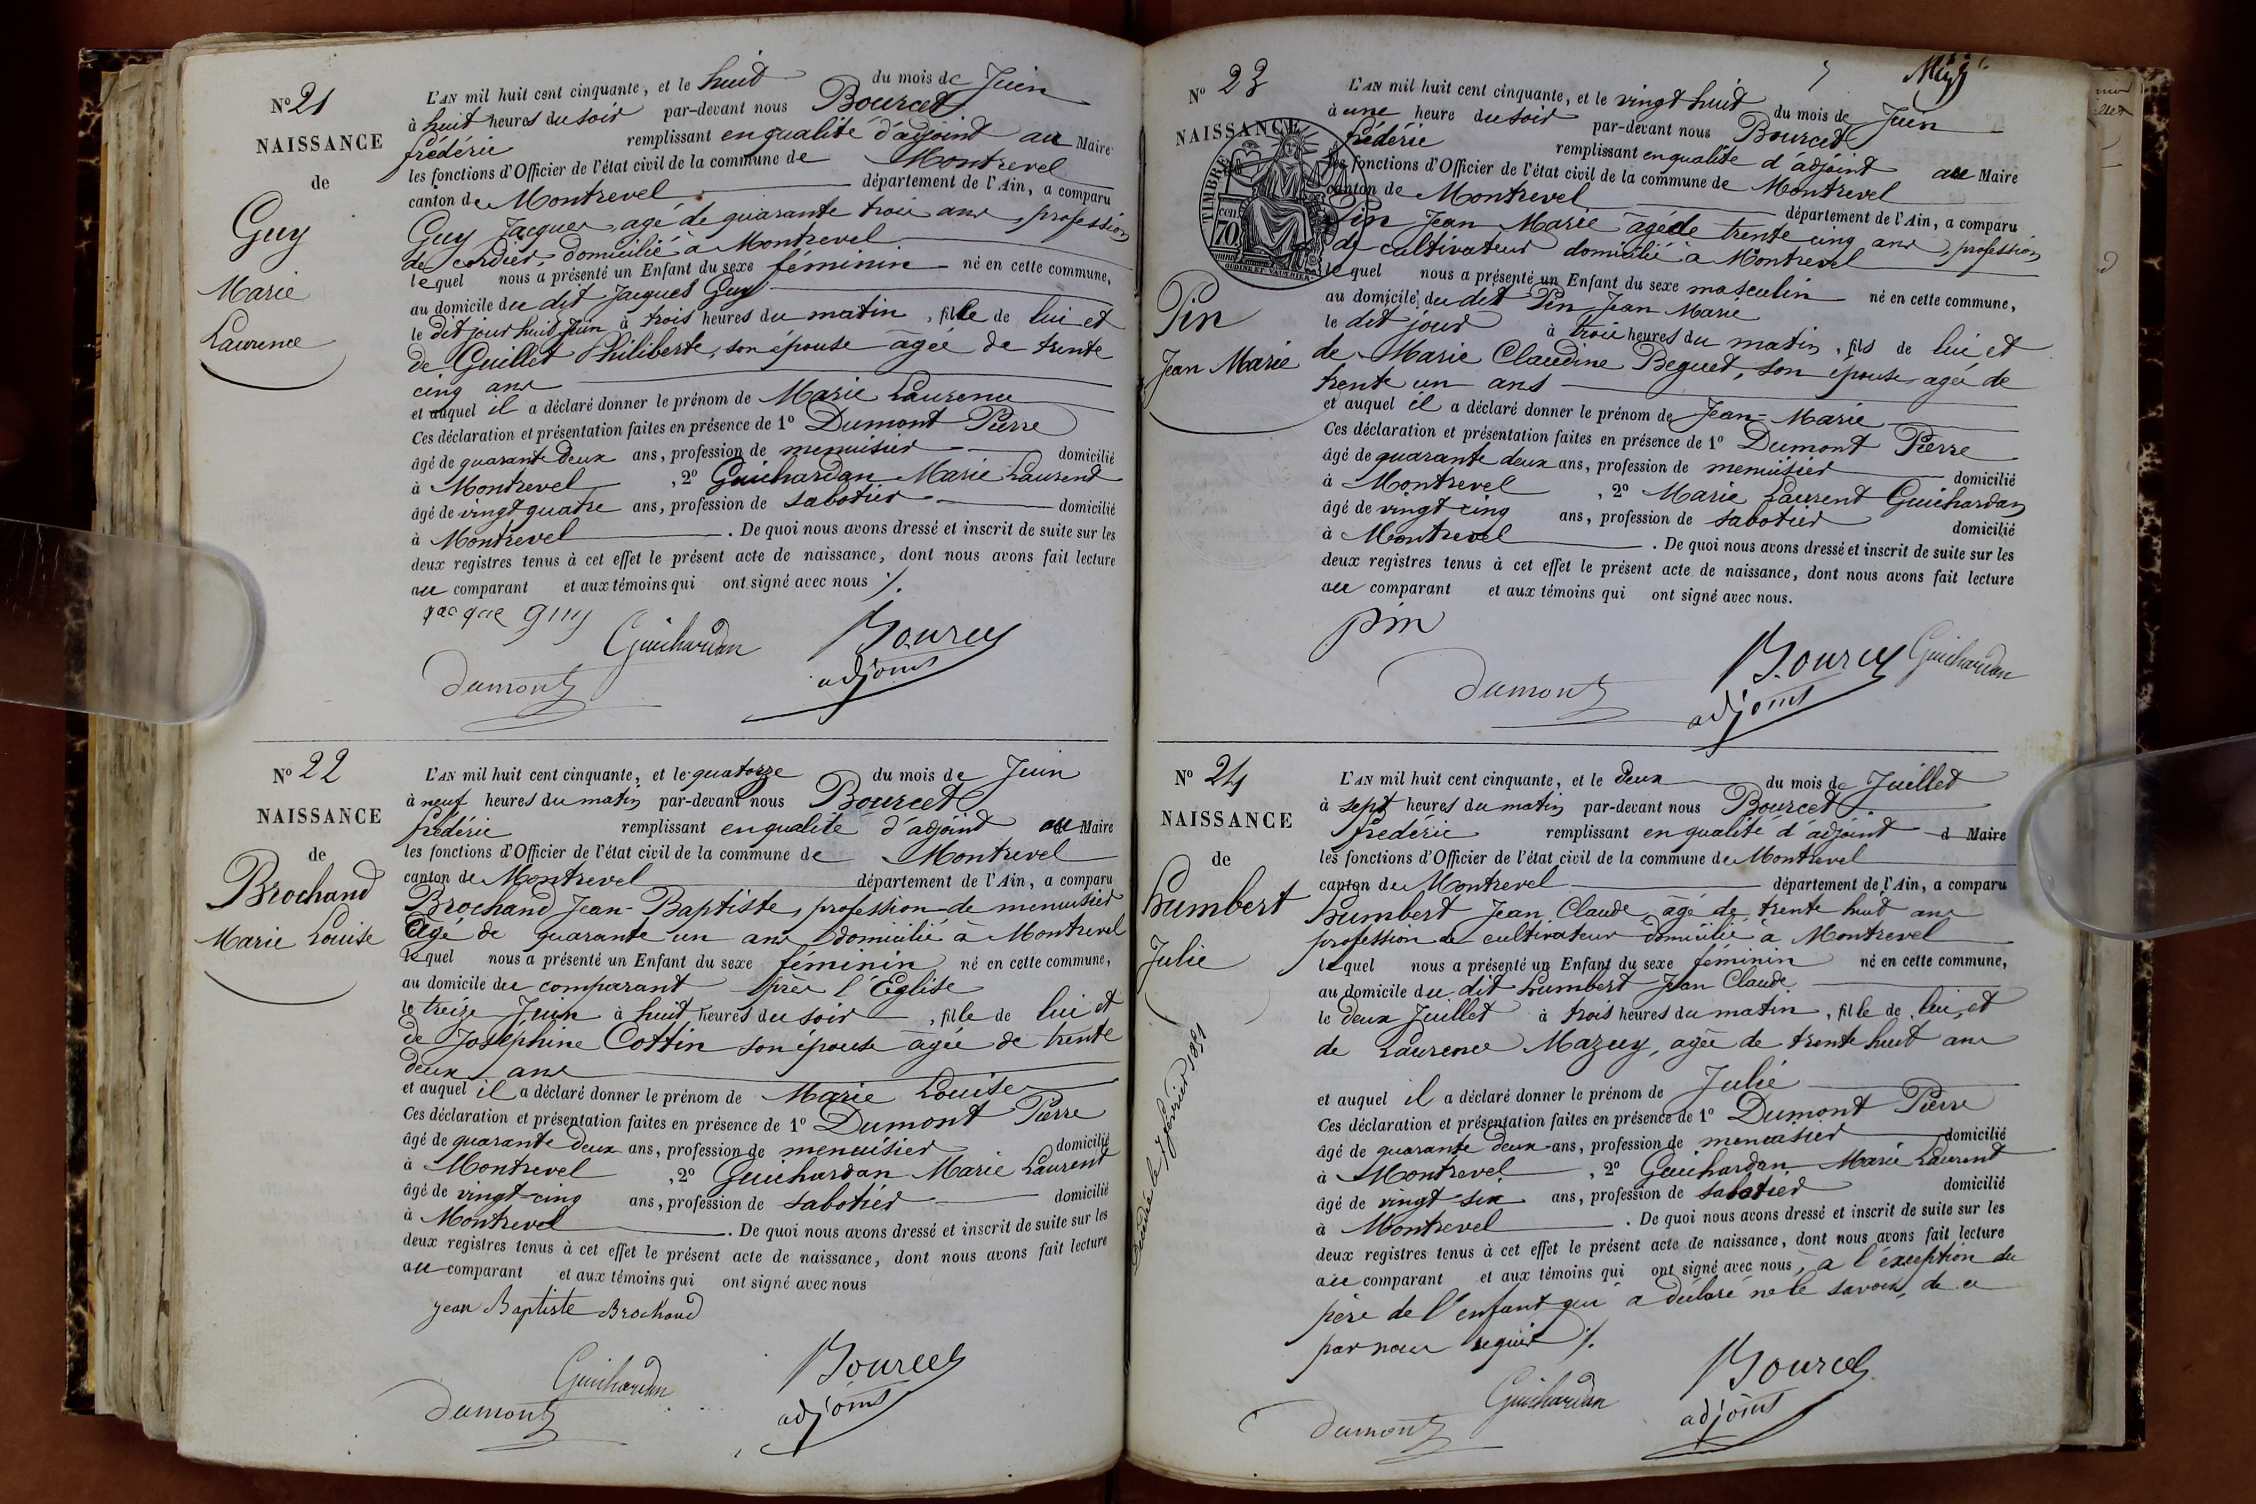 N° 21
NAISSANCE
de
Guy
Marie
Laurence
L'AN mil huit cent cinquante, et le huit du mois de Juin
à huit heures du soir par-devant nous Bourcet
frédéric remplissant en qualité d'adjoint au Maire
les fonctions d'Officier de l'état civil de la commune de Montrevel
canton de Montrevel département de l'Ain, a comparu
Guy Jacques agé de quarante trois ans, profession
de cordier, domicilié à Montrevel
lequel nous a présenté un Enfant du sexe féminin né en cette commune,
au domicile du dit Jacques Guy
le dit jour huit Juin à trois heures du matin, fille de lui et
de Guillet Philiberte, son épouse agée de trente
cinq ans
et auquel il a déclaré donner le prénom de Marie Laurence
Ces déclaration et présentation faites en présence de 1° Dumont Pierre
âgé de quarante deux ans, profession de menuisier domicilié
à Montrevel, 2° Guichardan Marie Laurent
âgé de vingt quatre ans, profession de sabotier domicilié
à Montrevel. De quoi nous avons dressé et inscrit de suite sur les
deux registres tenus à cet effet le présent acte de naissance, dont nous avons fait lecture
au comparant et aux témoins qui ont signé avec nous ./.
jacque guy
Guichardan Bourcet
Dumont adjoint
N° 22
NAISSANCE
de
Brochand
Marie Louise
L'AN mil huit cent cinquante, et le quatorze du mois de Juin
à neuf heures du matin par-devant nous Bourcet
frédéric remplissant en qualité d'adjoint au Maire
les fonctions d'Officier de l'état civil de la commune de Montrevel
canton de Montrevel département de l'Ain, a comparu
Brochand Jean-Baptiste, profession de menuisier
Agé de quarante un ans domicilié à Montrevel
lequel nous a présenté un Enfant du sexe féminin né en cette commune,
au domicile du comparant près l'Eglise
le treize Juin à huit heures du soir, fille de lui et
de Joséphine Cottin son épouse agée de trente
deux ans
et auquel il a déclaré donner le prénom de Marie Louise
Ces déclaration et présentation faites en présence de 1° Dumont Pierre
âgé de quarante deux ans, profession de menuisier domicilié
à Montrevel, 2° Guichardan Marie Laurent
âgé de vingt-cinq ans, profession de sabotier domicilié
à Montrevel. De quoi nous avons dressé et inscrit de suite sur les
deux registres tenus à cet effet le présent acte de naissance, dont nous avons fait lecture
au comparant et aux témoins qui ont signé avec nous
jean Baptiste Brochand
Guichardan Bourcet
Dumont adjoint
N° 23
NAISSANCE
Pin
Jean Marie
TIMBRE
70
L'AN mil huit cent cinquante, et le vingt huit du mois de Juin
à une heure du soir par-devant nous Bourcet
frédéric remplissant en qualité d'adjoint au Maire
les fonctions d'Officier de l'état civil de la commune de Montrevel
canton de Montrevel département de l'Ain, a comparu
Pin Jean Marie agé de trente cinq ans, profession
de cultivateur domicilié à Montrevel
lequel nous a présenté un Enfant du sexe masculin né en cette commune,
au domicile du dit Pin Jean Marie
le dit jour à trois heures du matin, fils de lui et
de Marie Claudine Beguet, son épouse agée de
trente un ans
et auquel il a déclaré donner le prénom de Jean-Marie
Ces déclaration et présentation faites en présence de 1° Dumont Pierre
âgé de quarante deux ans, profession de menuisier domicilié
à Montrevel, 2° Marie Laurent Guichardan
âgé de vingt cinq ans, profession de sabotier domicilié
à Montrevel. De quoi nous avons dressé et inscrit de suite sur les
deux registres tenus à cet effet le présent acte de naissance, dont nous avons fait lecture
au comparant et aux témoins qui ont signé avec nous.
pin
Bourcet Guichardan
Dumont adjoint
N° 24
NAISSANCE
de
humbert
Julie
L'AN mil huit cent cinquante, et le deux du mois de Juillet
à sept heures du matin par-devant nous Bourcet
frédéric remplissant en qualité d'adjoint d Maire
les fonctions d'Officier de l'état civil de la commune de Montrevel
canton de Montrevel département de l'Ain, a comparu
humbert Jean Claude, agé de trente huit ans
profession de cultivateur domicilié a Montrevel
lequel nous a présenté un Enfant du sexe féminin né en cette commune,
au domicile du dit humbert Jean Claude
le deux Juillet à trois heures du matin, fille de lui, et
de Laurence Mazuy, agée de trente huit ans
et auquel il a déclaré donner le prénom de Julie
Ces déclaration et présentation faites en présence de 1° Dumont Pierre
âgé de quarante deux ans, profession de menuisier domicilié
à Montrevel, 2° Guichardan Marie Laurent
âgé de vingt-six ans, profession de sabotier domicilié
à Montrevel. De quoi nous avons dressé et inscrit de suite sur les
deux registres tenus à cet effet le présent acte de naissance, dont nous avons fait lecture
au comparant et aux témoins qui ont signé avec nous, à l'éxception du
père de l'enfant qui a déclaré ne le savoir, de ce
par nous requis ./.
Guichardan Bourcet
Dumont adjoint